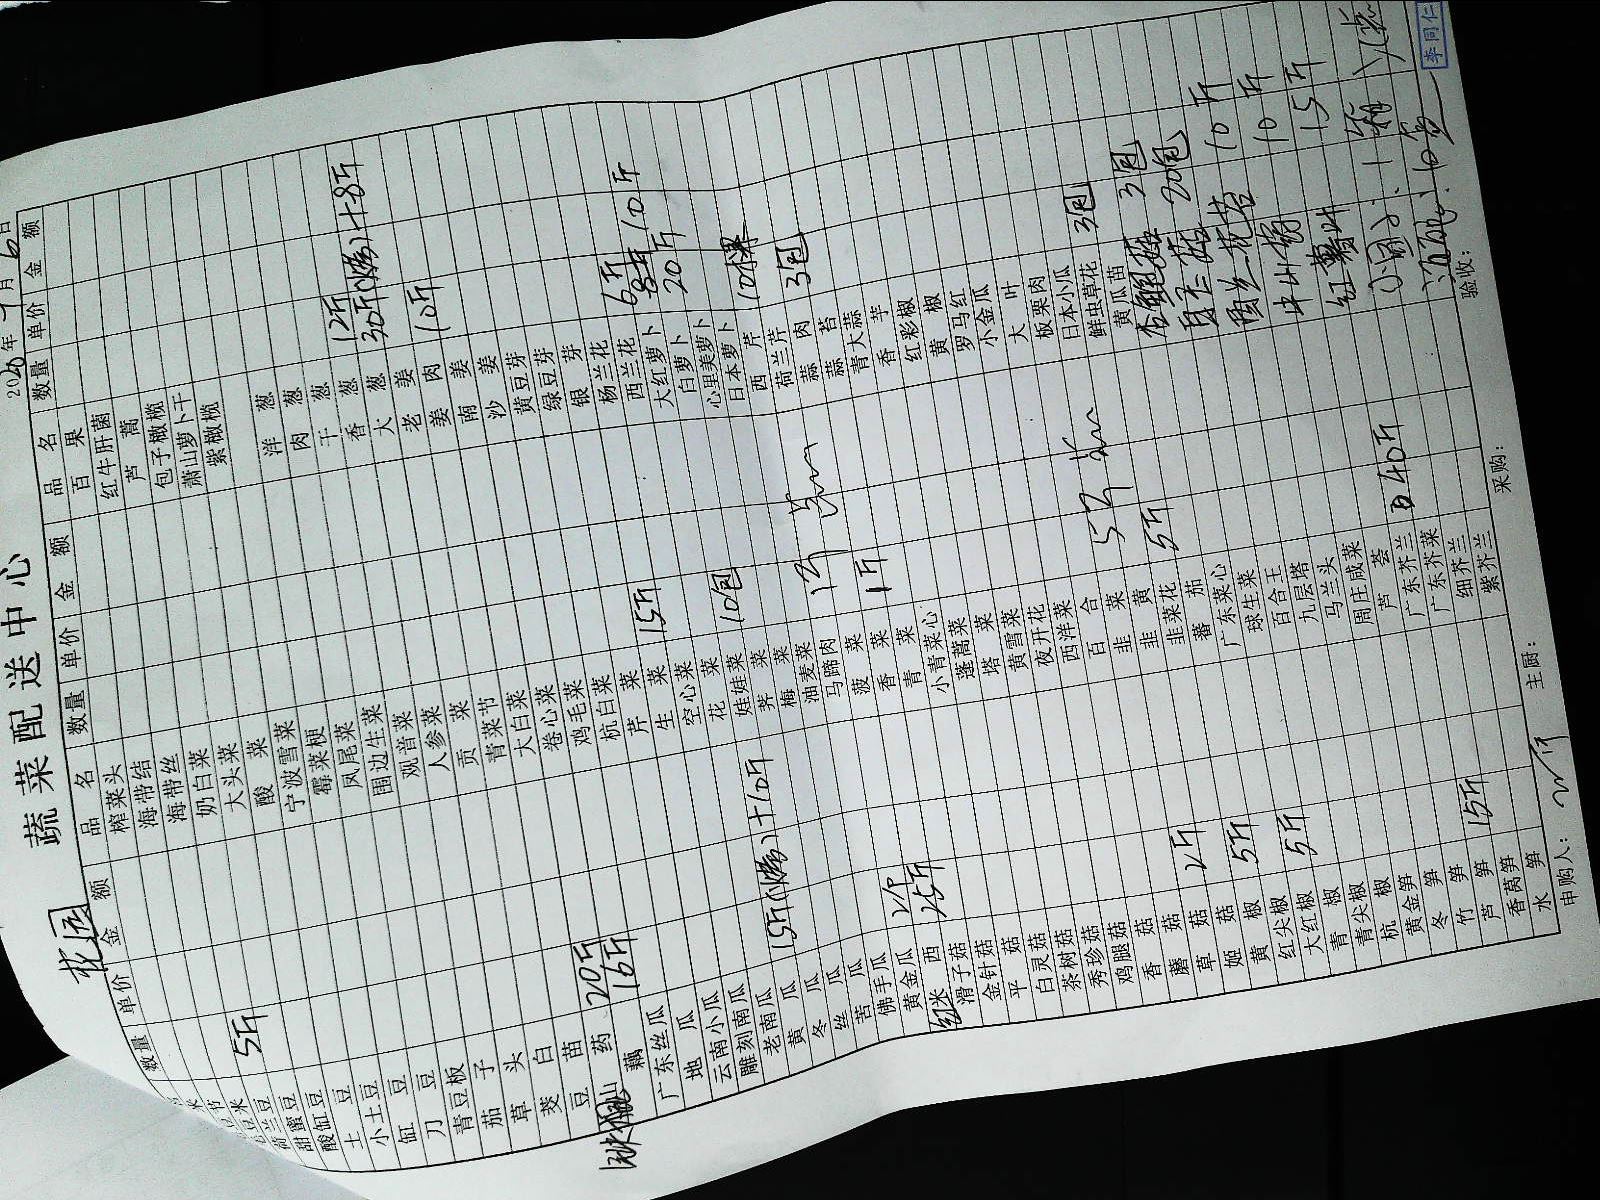 蔬菜配送中心
花园
2020年7月6日
品名 数量 单价 金额 品名 数量 单价 金额 品名 数量 单价 金额
榨菜头
海带结
海带丝
奶白菜
大头菜
酸菜
宁波雪菜
霉菜梗
凤尾菜
围边生菜
观音菜
人参菜
贡菜
青菜节
大白菜
卷心菜
鸡毛菜
杭白菜
芹菜
生菜 15斤
空心菜
花菜
娃娃菜 10包
荠菜
梅菜
油麦菜
马蹄肉
菠菜
香菜 1斤
青菜
小青菜心
蓬蒿菜
塔菜
黄雪菜
夜开花
西洋菜
百合
韭菜 5斤
韭黄
韭菜花 5斤
番茄
广东菜心
球生菜
百合王
九层塔
马兰头
周庄咸菜
芦荟
广东芥兰 40斤
广东芥菜
细芥兰
紫芥兰
荷兰豆 5斤
甜蜜豆
酸缸豆
土豆
小土豆
缸豆
刀豆
青豆板
茄子
草头
茭白
豆苗 20斤
山药 16斤
藕
广东丝瓜
地瓜
云南小瓜
雕刻南瓜
老南瓜 15斤 +10斤
黄瓜
冬瓜
丝瓜
苦瓜
佛手瓜
黄金瓜
红米西 25斤
滑子菇
金针菇
平菇
白灵菇
茶树菇
秀珍菇
鸡腿菇
香菇
蘑菇
草菇 2斤
姬菇
黄椒 5斤
红尖椒
大红椒 5斤
青椒
青尖椒
杭椒
黄金笋
冬笋
竹笋
芦笋 15斤
香莴笋
水笋
百果
红牛肝菌
芦蒿
包子橄榄
萧山萝卜干
紫橄榄
洋葱
肉葱
干葱
香葱 12斤
大葱 30斤 +8斤
老姜
姜肉 10斤
南姜
沙姜
黄豆芽
绿豆芽
银芽
杨兰花
西兰花 6斤
大红萝卜 10斤
白萝卜 20斤
心里美萝卜
日本萝卜
西芹 10棵
荷兰芹
蒜肉 3包
蒜苔
青大蒜
香芋
红彩椒
黄椒
罗马红
小金瓜
大叶
板栗肉
日本小瓜
鲜虫草花 3包
黄瓜苗
杏鲍菇 3包
白玉菇 20包
10斤
10斤
红薯叶 15斤
1箱
10盒
申购人： 主厨： 采购： 验收：
李同仁